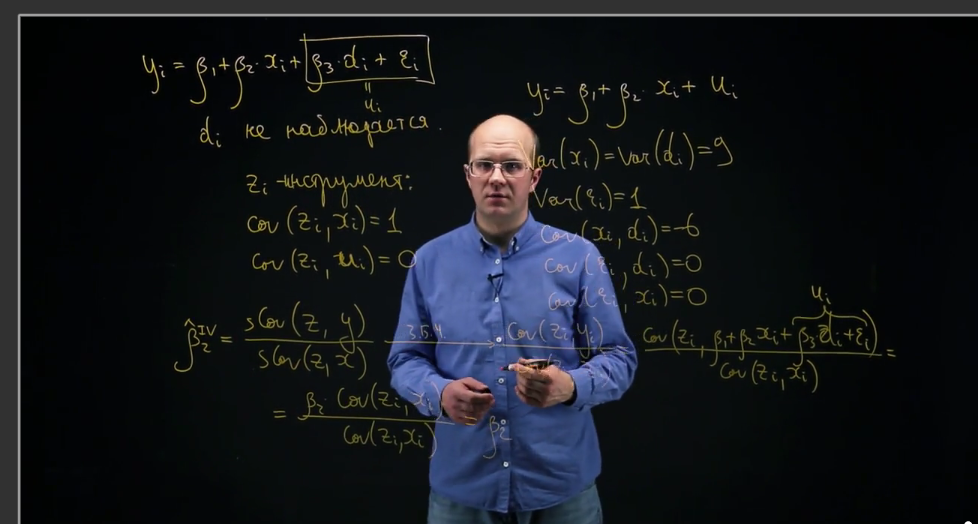 yᵢ = β₁ + β₂ · xᵢ + β₃ · dᵢ + εᵢ
"
uᵢ
dᵢ не наблюдается.
zᵢ - инструмент:
cov (zᵢ, xᵢ) = 1
cov (zᵢ, uᵢ) = 0
yᵢ = β₁ + β₂ · xᵢ + uᵢ
Var(xᵢ) = Var(dᵢ) = 9
Var(εᵢ) = 1
Cov (xᵢ, dᵢ) = -6
Cov (εᵢ, dᵢ) = 0
Cov (εᵢ, xᵢ) = 0
β̂₂ᴵⱽ = sCov (z, y) / sCov (z, x) З.Б.Ч. Cov (zᵢ, yᵢ)
uᵢ
Cov (zᵢ, β₁ + β₂xᵢ + β₃dᵢ + εᵢ) / Cov (zᵢ, xᵢ) =
= β₂ · Cov (zᵢ, xᵢ) / Cov (zᵢ, xᵢ) β₂